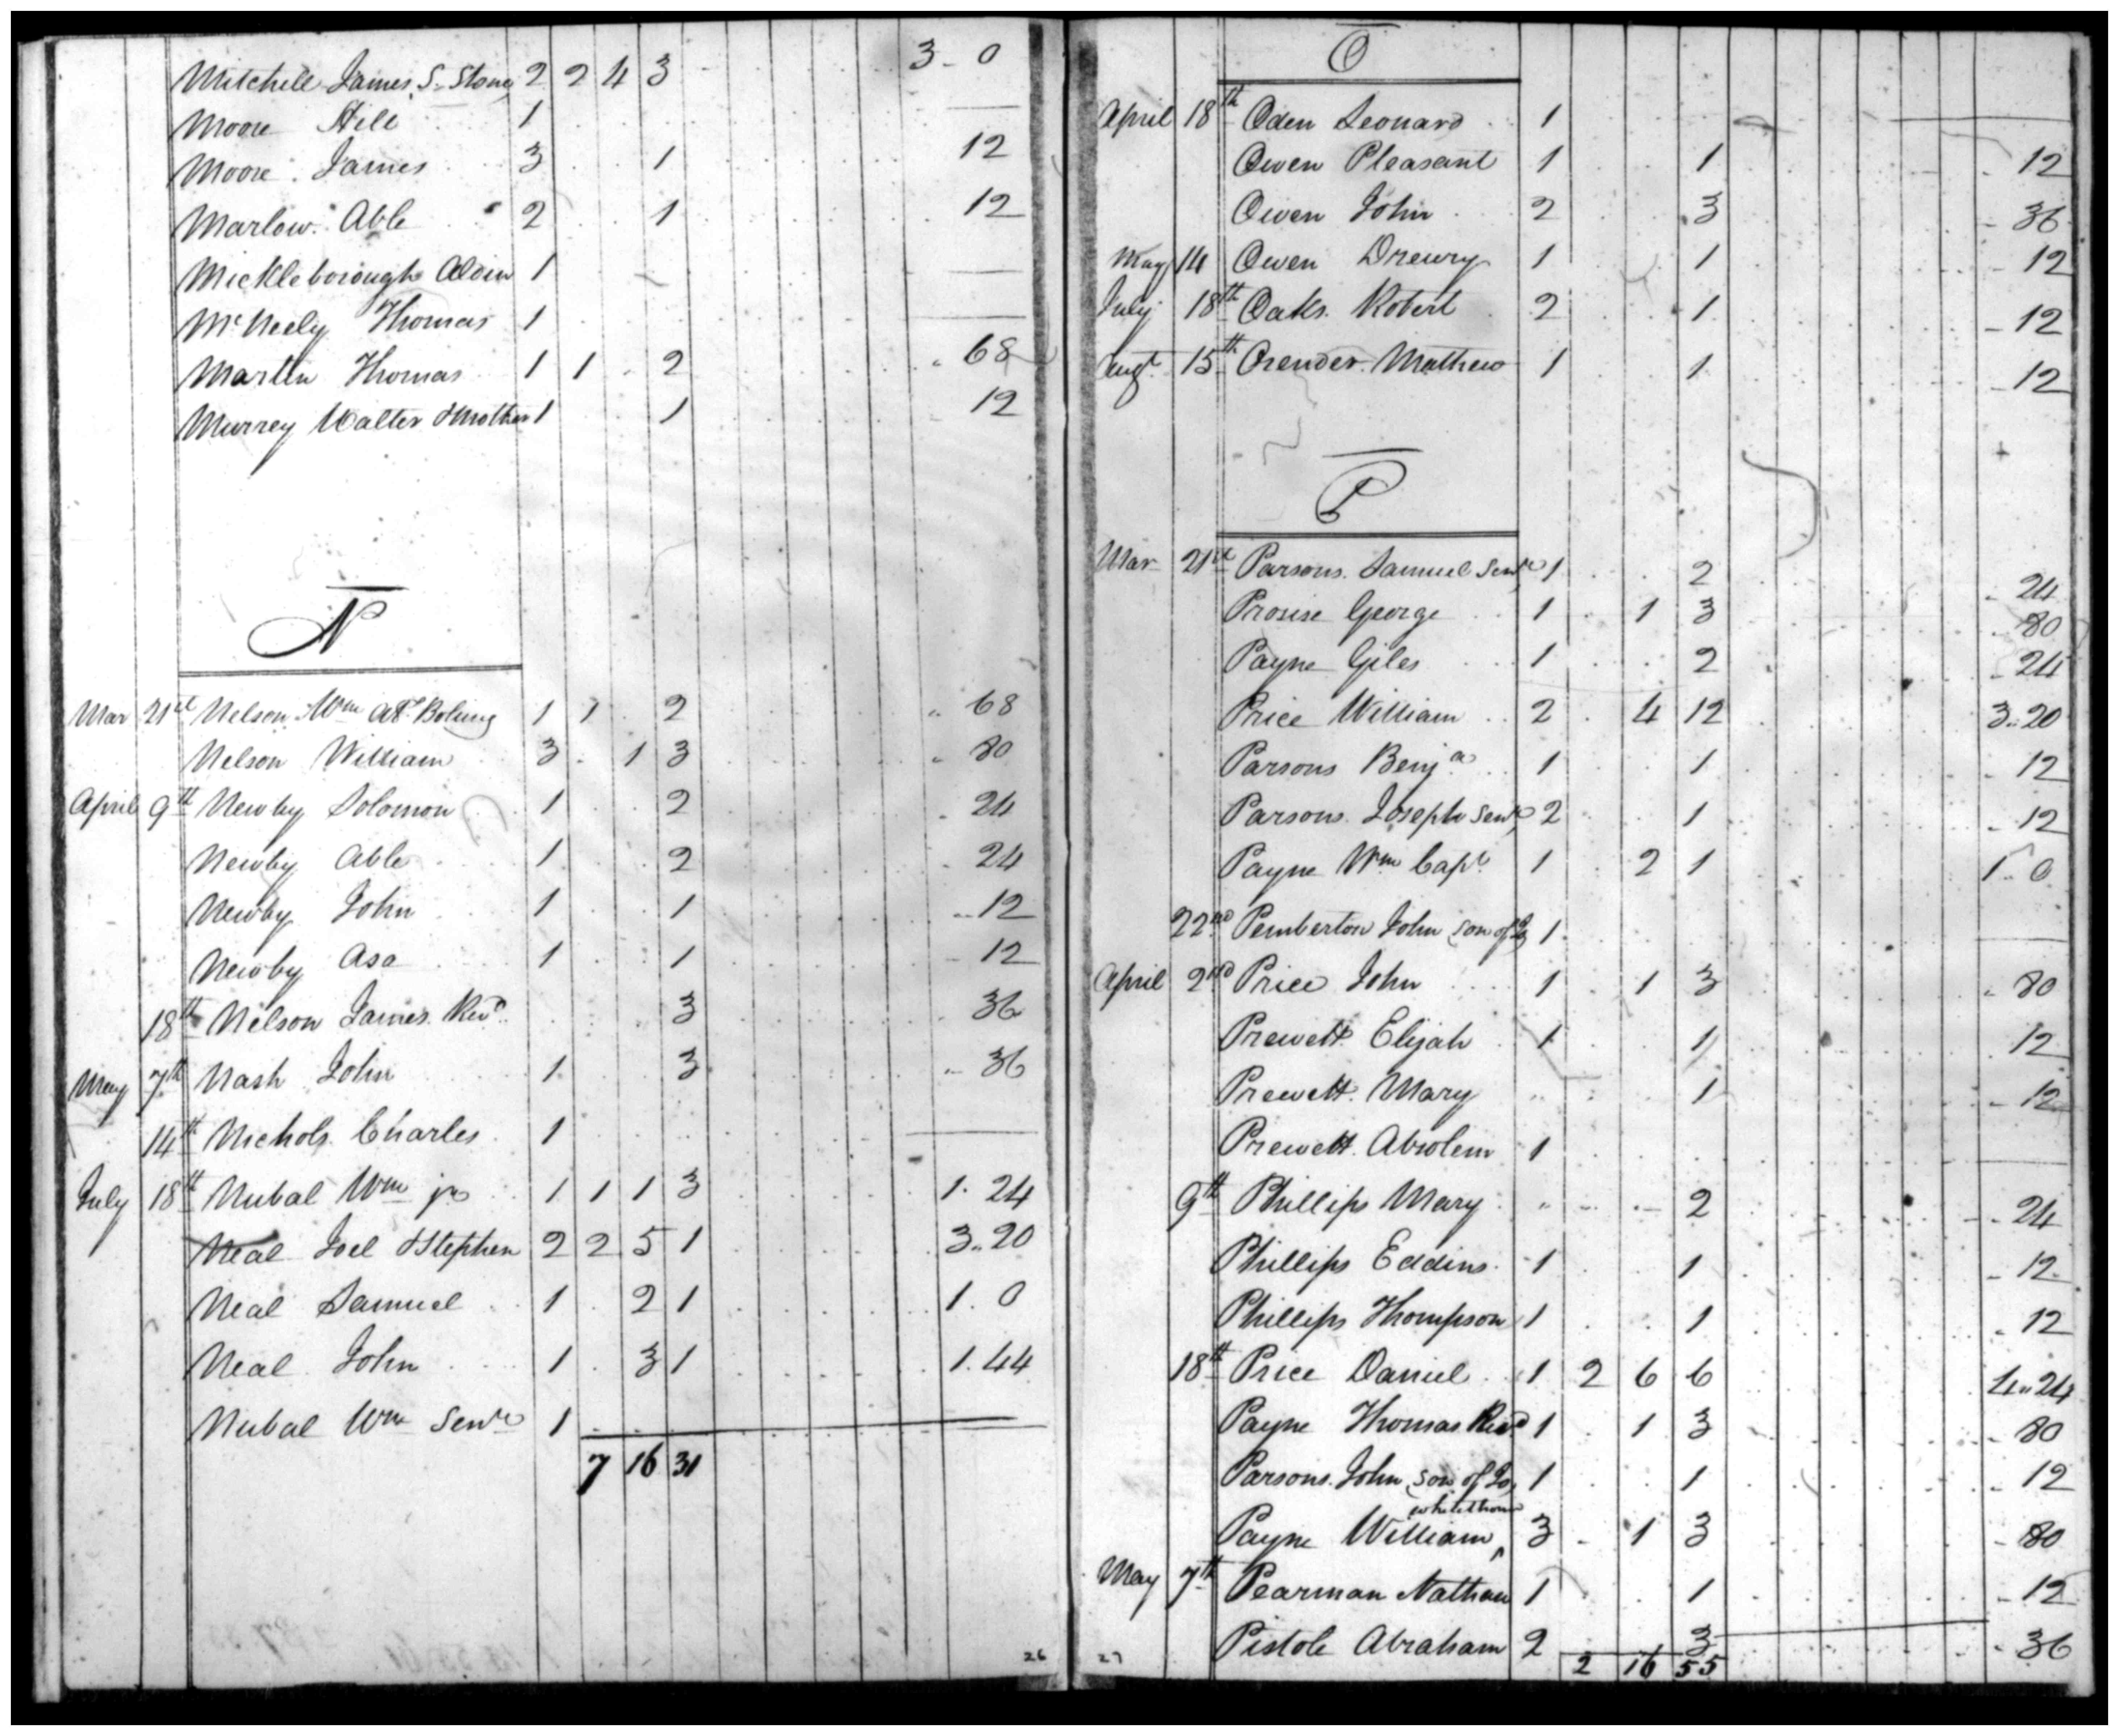 Mitchell James S. Stone 2 2 4 3 3 - 0
Moore Hill 1
Moore James 3 1 12
Marlow Able 2 1 12
Mickleborough 1
McNeely Thomas 1
Martin Thomas 1 1 2 68
Murrey Walter & Mother 1 1 12
N
Mar 21st Nelson Wm 1 1 2 68
Nelson William 3 1 3 80
April 9th Newby Solomon 1 2 24
Newby Able 1 2 24
Newby John 1 1 12
Newby Asa 1 1 12
18th Nelson James Revd 3 36
May 7th Nash John 1 3 36
14th Nichols Charles 1
July 18th Nubal Wm jr 1 1 1 3 1. 24
Neal Joel & Stephen 2 2 5 1 3.. 20
Neal Samuel 1 2 1 1. 0
Neal John 1 3 1 1. 44
Nubal Wm Senr 1
7 16 31
26
O
April 18th Oden Leonard 1
Owen Pleasant 1 1 12
Owen John 2 3 36
May 14 Owen Drewry 1 1 12
July 18th Oaks Robert 2 1 12
Augt 15th Orender Mathew 1 1 12
P
Mar 21st Parsons Samuel Senr 1 2 24
Prosise George 1 1 3 80
Payne Giles 1 2 24
Price William 2 4 12 3.. 20
Parsons Benja 1 1 12
Parsons Joseph Senr 2 1 12
Payne Wm Capt 1 2 1 1.. 0
22nd Pemberton John son of 1
April 2nd Price John 1 1 3 80
Prewett Elijah 1 1 12
Prewett Mary 1 12
Prewett Absolem 1
9th Phillips Mary 2 24
Phillips Eddins 1 1 12
Phillips Thompson 1 1 12
18th Price Daniel 1 2 6 6 4.. 24
Payne Thomas Revd 1 1 3 80
Parsons John son of Jo 1 1 12
whitethorn
Payne William 3 1 3 80
May 7th Pearman Nathan 1 1 12
Pistole Abraham 2 3 36
2 16 55
27